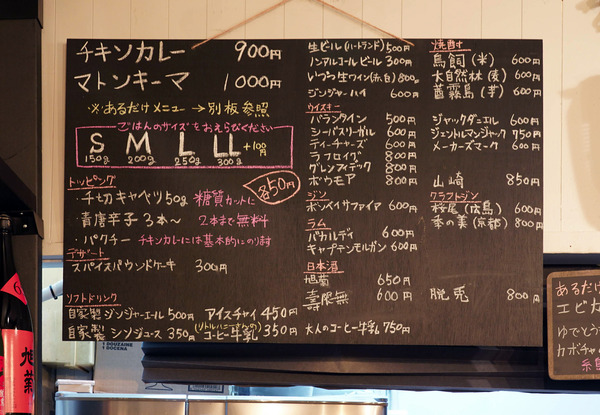 チキンカレー 900円
マトンキーマ 1000円
※あるだけメニュー→別板参照
ごはんのサイズをおえらびください
S M L LL +100円
150g 200g 250g 300g
トッピング
・千切キャベツ50g 糖質カットに
各50円
・青唐辛子3本〜 2本まで無料
・パクチー チキンカレーには基本的にのります
デザート
スパイスパウンドケーキ 300円
ソフトドリンク
自家製ジンジャーエール500円 アイスチャイ450円
自家製シソジュース350円 コーヒー牛乳350円
生ビール(ハートランド)500円
ノンアルコールビール300円
いつつ生ワイン(赤・白)800円
ジンジャーハイ 600円
ウイスキー
バランタイン 500円
シーバスリーガル 600円
ティーチャーズ 600円
ラフロイグ 800円
グレンフィディック 800円
ボウモア 800円
ジン
ボンベイサファイア 600円
ラム
バカルディ 600円
キャプテンモルガン 600円
日本酒
旭菊 650円
壽限無 600円
大人のコーヒー牛乳750円
焼酎
鳥飼(米) 600円
大自然林(麦) 600円
茜霧島(芋) 600円
ジャックダニエル 600円
ジェントルマンジャック 750円
メーカーズマーク 600円
山崎 850円
クラフトジン
桜尾(広島) 600円
季の美(京都) 800円
脱兎 800円
あるだけ
エビカ
ゆでとう
カボチャ
旭菊